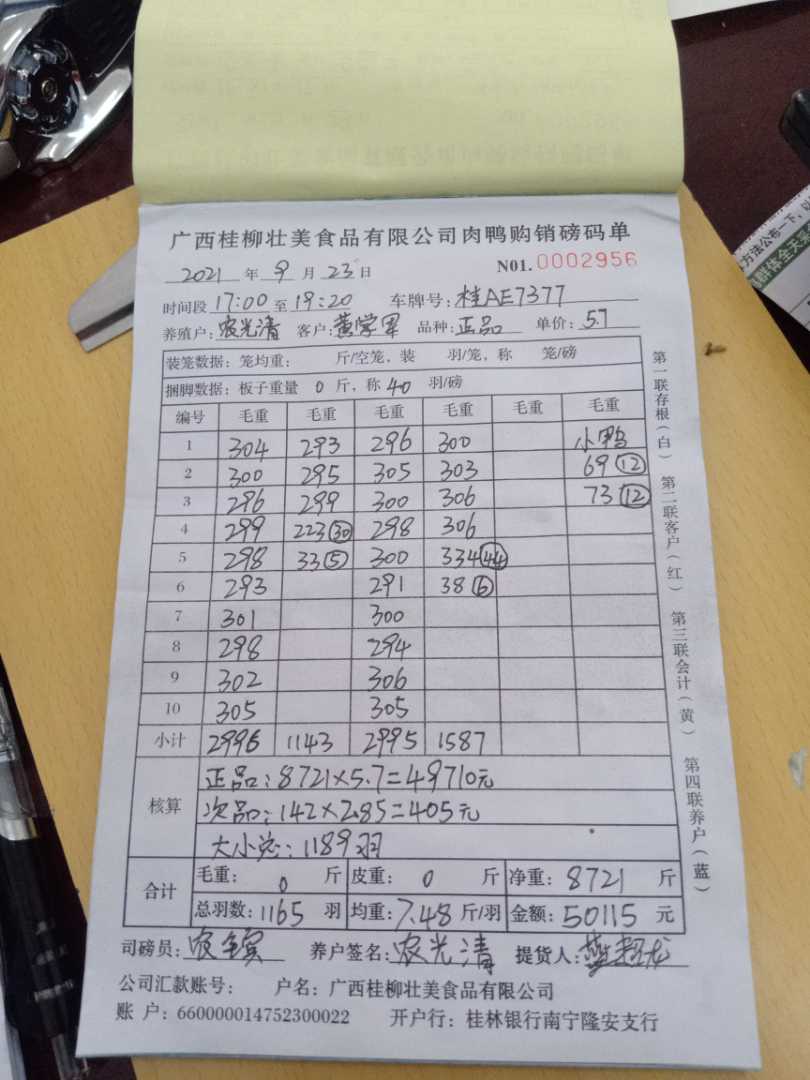 广西桂柳壮美食品有限公司肉鸭购销磅码单
2021 年 9 月 23 日 N01.0002956
时间段 17:00 至 19:20 车牌号: 桂AE7377
养殖户: 农光清 客户: 黄学军 品种: 正品 单价: 5.7
装笼数据: 笼均重: 斤/空笼, 装 羽/笼, 称 笼/磅
捆脚数据: 板子重量 0 斤, 称 40 羽/磅
编号 毛重 毛重 毛重 毛重 毛重 毛重
1 304 293 296 300 小鸭
2 300 295 305 303 69 ⑫
3 296 299 300 306 73 ⑫
4 299 223 ㉚ 298 306
5 298 33 ⑤ 300 334 ㊹
6 293 291 38 ⑥
7 301 300
8 298 294
9 302 306
10 305 305
小计 2996 1143 2995 1587
核算
正品: 8721×5.7=49710元
次品: 142×2.85=405元
大小总: 1189羽
合计
毛重: 0 斤 皮重: 0 斤 净重: 8721 斤
总羽数: 1165 羽 均重: 7.48 斤/羽 金额: 50115 元
司磅员: 农 养户签名: 农光清 提货人: 龙
公司汇款账号: 户名: 广西桂柳壮美食品有限公司
账 户: 660000014752300022 开户行: 桂林银行南宁隆安支行
第一联存根(白) 第二联客户(红) 第三联会计(黄) 第四联养户(蓝)
方法公布一下,以
群体全天